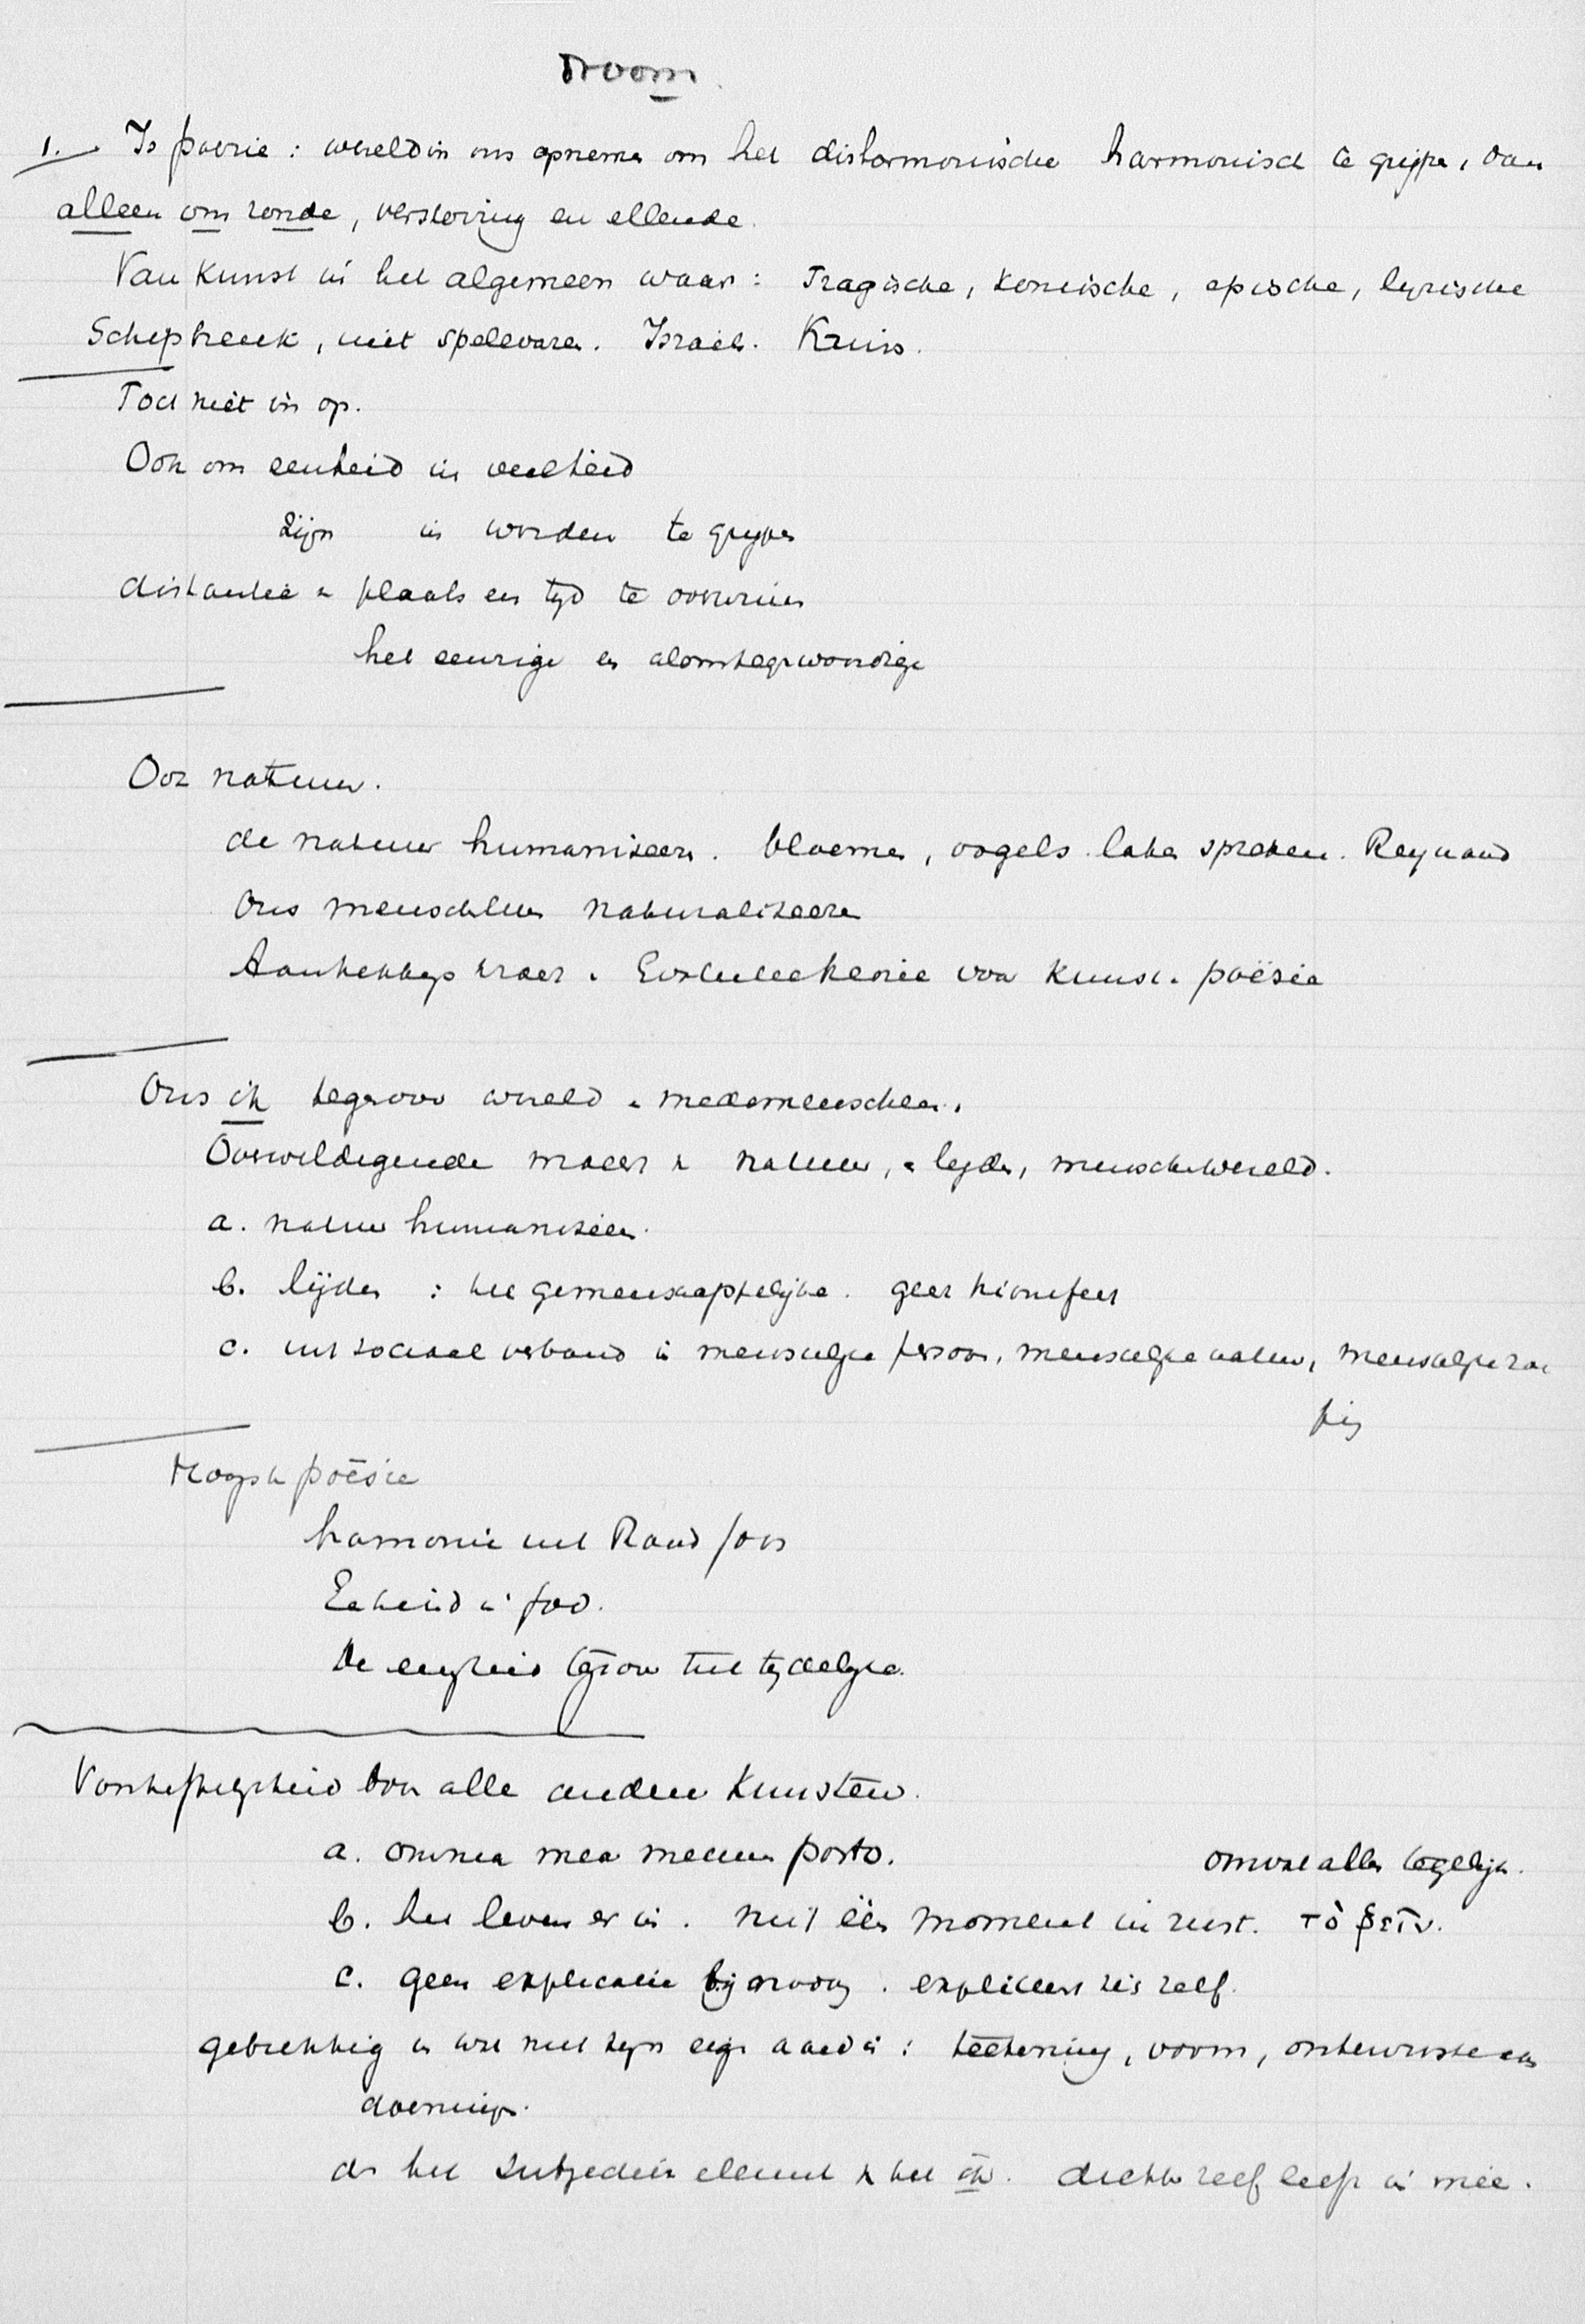 Droom
1. Is poezie: wereld in ons opnemen om het disharmonische harmonisch te grijpen, dan
alleen om zonde, verstoring en ellende.
Van Kunst in het algemeen waar: Tragische, komische, epische, lyrische
Schipbreuk, niet spelevaren. Israël. Kruis.
Toch niet in op.
Ook om eenheid in veelheid
zijn in worden te grijpen
distantie v plaats en tijd te overwinnen
het eeuwige en alomtegenwoordige
Ook natuur.
de natuur humaniseeren. bloemen, vogels laten spreken. Reynaard
Ons menschelijken naturaliseeren
Evolutietheorie voor Kunst. poësie
Ons ik tegenover wereld v medemenschen.
Overweldigende macht v natuur, v lijden, menschenwereld.
a. natuur humaniseeren.
b. lijden : het gemeenschappelijke. geen
c. uit sociaal verband in menschelijke persoon, menschelijke natuur, menschelijke
Hoogste poësie
harmonie uit Raad Gods
Eenheid in God.
De eeuwigheid tegenover het tijdelijke.
Voortreffelijkheid boven alle andere Kunsten.
a. omnia mea mecum porto. omvat alles tegelijk.
b. het leven er in. niet één moment in rust. τὸ ῥεῖν.
c. geen explicatie bij noodig. expliceert zich zelf.
gebrekkig in wat niet zijn eigen aard is: teekening, vorm, onbewuste
d. het subjectieve element v het ik. dichter zelf leeft in mee.